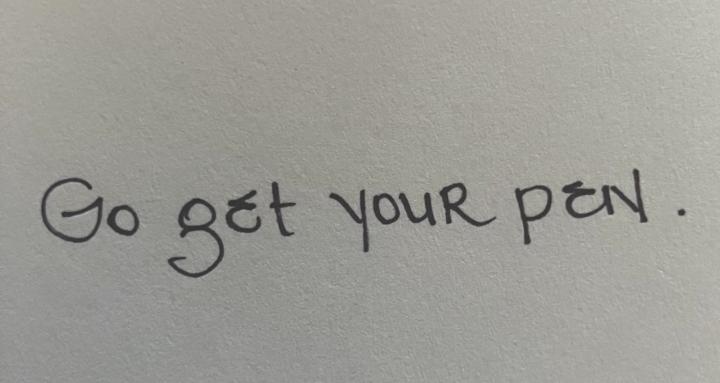 Go get your pen.